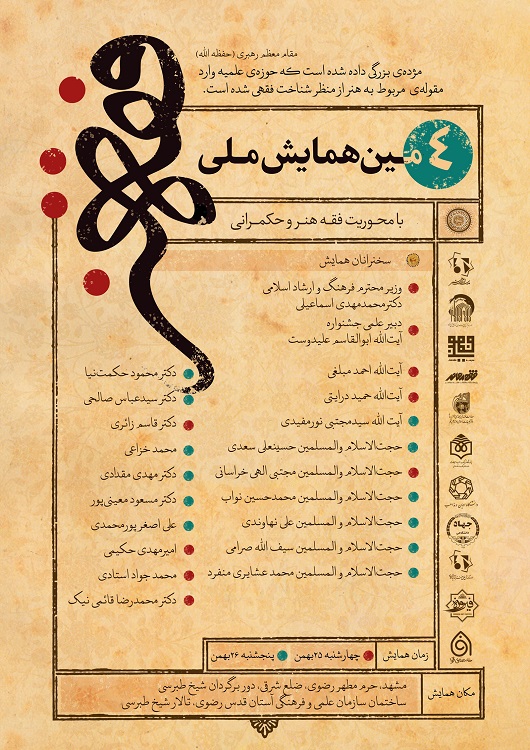 مقام معظم رهبری (حفظه الله)
مژده‌ی بزرگی داده شده است که حوزه‌ی علمیه وارد
مقوله‌ی مربوط به هنر از منظر شناخت فقهی شده است.
٤مین همایش ملی
با محوریت فقه هنر و حکمرانی
سخنرانان همایش
وزیر محترم فرهنگ و ارشاد اسلامی
دکتر محمدمهدی اسماعیلی
دبیر علمی جشنواره
آیت‌الله ابوالقاسم علیدوست
آیت‌الله احمد مبلغی
آیت‌الله حمید درایتی
آیت الله سیدمجتبی نورمفیدی
حجت‌الاسلام والمسلمین حسینعلی سعدی
حجت‌الاسلام والمسلمین مجتبی الهی خراسانی
حجت‌الاسلام و المسلمین محمدحسین نواب
حجت‌الاسلام و المسلمین علی نهاوندی
حجت‌الاسلام و المسلمین سیف الله صرامی
حجت‌الاسلام و المسلمین محمد عشایری منفرد
دکتر محمود حکمت‌نیا
دکتر سیدعباس صالحی
دکتر قاسم زائری
محمد خزاعی
دکتر مهدی مقدادی
دکتر مسعود معینی‌پور
علی اصغر پورمحمدی
امیرمهدی حکیمی
محمد جواد استادی
دکتر محمدرضا قائمی نیک
زمان همایش
چهارشنبه ۲۵ بهمن
پنجشنبه ۲۶ بهمن
مکان همایش
مشهد، حرم مطهر رضوی، ضلع شرقی، دور برگردان شیخ طبرسی
ساختمان سازمان علمی و فرهنگی آستان قدس رضوی، تالار شیخ طبرسی
جهاد